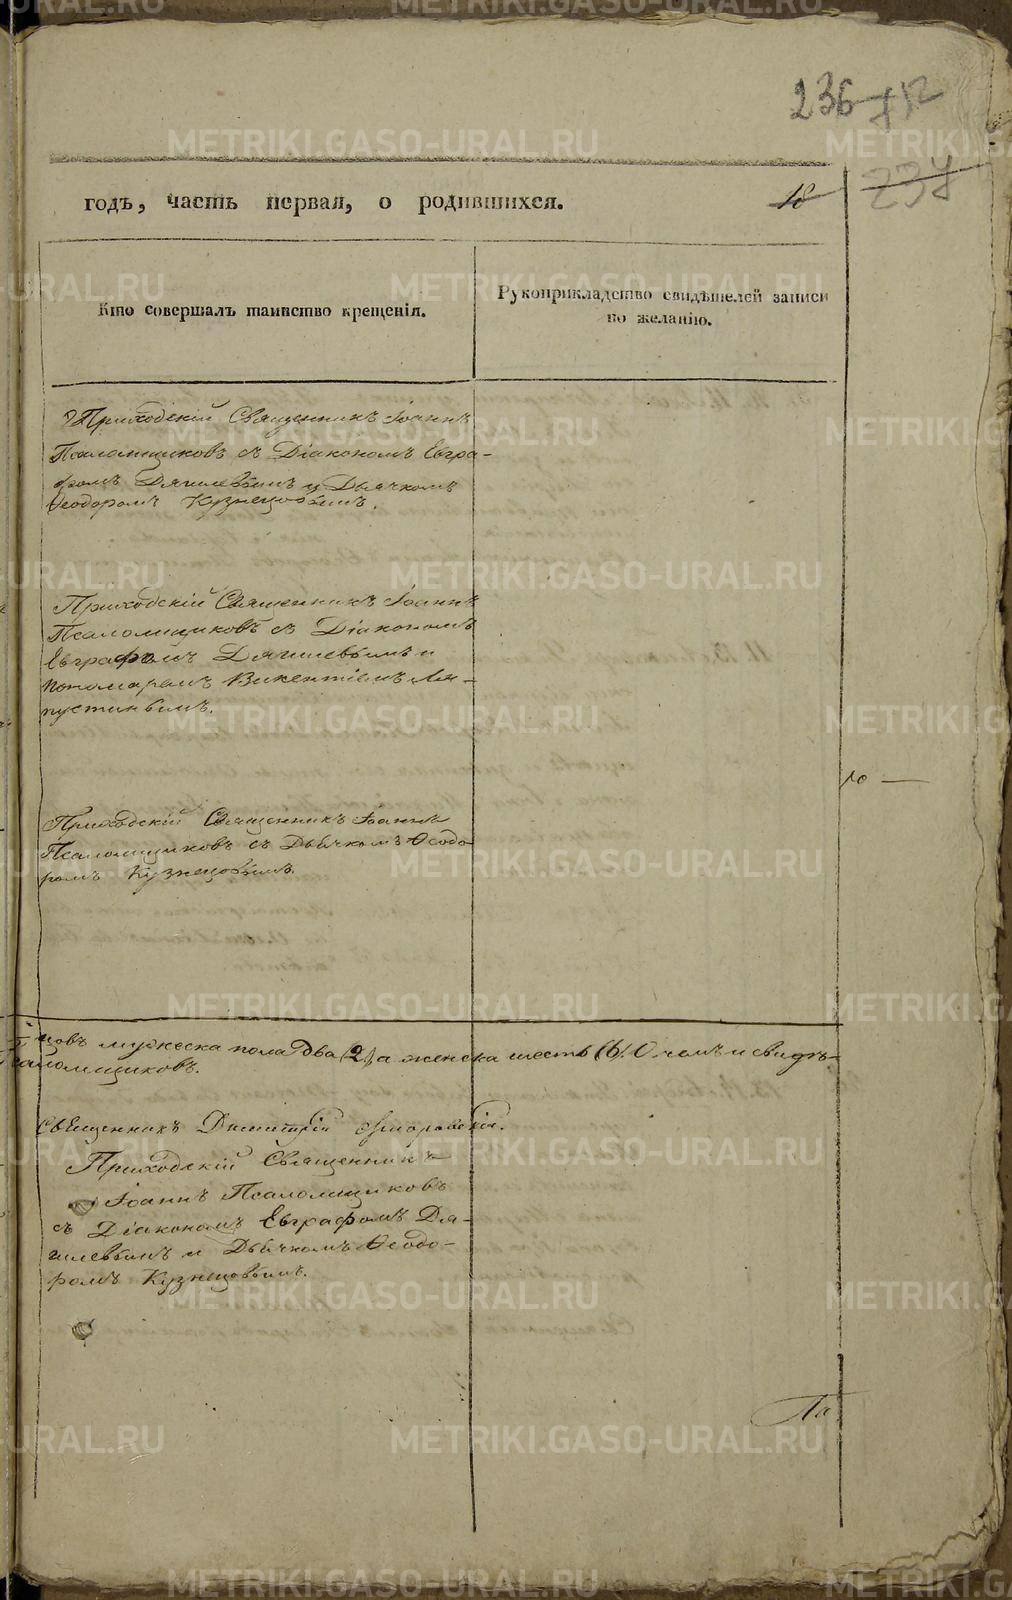 236
237
годъ, часть первая, о родившихся.
18
Кто совершалъ таинство крещенія.
Рукоприкладство свидѣтелей записи
по желанію.
Приходскій Священникъ Іоаннъ
Псаломщиковъ съ Діакономъ Евгра-
фомъ Дягилевымъ и Дьячкомъ
Ѳеодоромъ Кузнецовымъ.
Приходскій Священникъ Іоаннъ
Псаломщиковъ съ Діакономъ
Евграфомъ Дягилевымъ и
пономаремъ Викентіемъ Ля-
пустинымъ.
10 —
Приходскій Священникъ Іоаннъ
Псаломщиковъ съ Дьячкомъ Ѳеодо-
ромъ Кузнецовымъ.
цовъ мужеска пола два (2) а женска шесть (6). О чемъ и свидѣ-
Псаломщиковъ.
Священникъ Димитрій
Приходскій Священникъ
Іоаннъ Псаломщиковъ
съ Діакономъ Евграфомъ Дя-
гилевымъ и Дьячкомъ Ѳеодо-
ромъ Кузнецовымъ.
METRIKI.GASO-URAL.RU